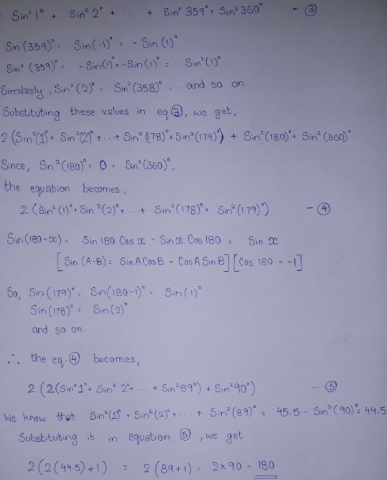 Sin²1° + Sin²2° + ... + Sin²359° + Sin²360° — ③
Sin(359)° = Sin(-1)° = - Sin(1)°
Sin²(359)° = -Sin(1)° × -Sin(1)° = Sin²(1)°
Similarly, Sin²(2)° = Sin²(358)° ... and so on.
Substituting these values in eq ③, we get,
2(Sin²(1)° + Sin²(2)° + ... + Sin²(178)° + Sin²(179)°) + Sin²(180)° + Sin²(360)°.
Since, Sin²(180)° = 0 = Sin²(360)°,
the equation becomes,
2(Sin²(1)° + Sin²(2)° + ... + Sin²(178)° + Sin²(179)°) — ④
Sin(180-x) = Sin 180 Cos x - Sin x Cos 180 = Sin x
[Sin (A-B) = Sin A Cos B - Cos A Sin B] [Cos 180 = -1]
So, Sin(179)° = Sin(180-1)° = Sin(1)°
Sin(178)° = Sin(2)°
and so on.
∴ the eq. ④ becomes,
2(2(Sin²1° + Sin²2° + ... + Sin²89°) + Sin²90°) — ⑤
We know that Sin²(1)° + Sin²(2)° + ... + Sin²(89)° = 45.5 - Sin²(90)° = 44.5
Substituting it in equation ⑤, we get
2(2(44.5)+1) = 2(89+1) = 2×90 = 180